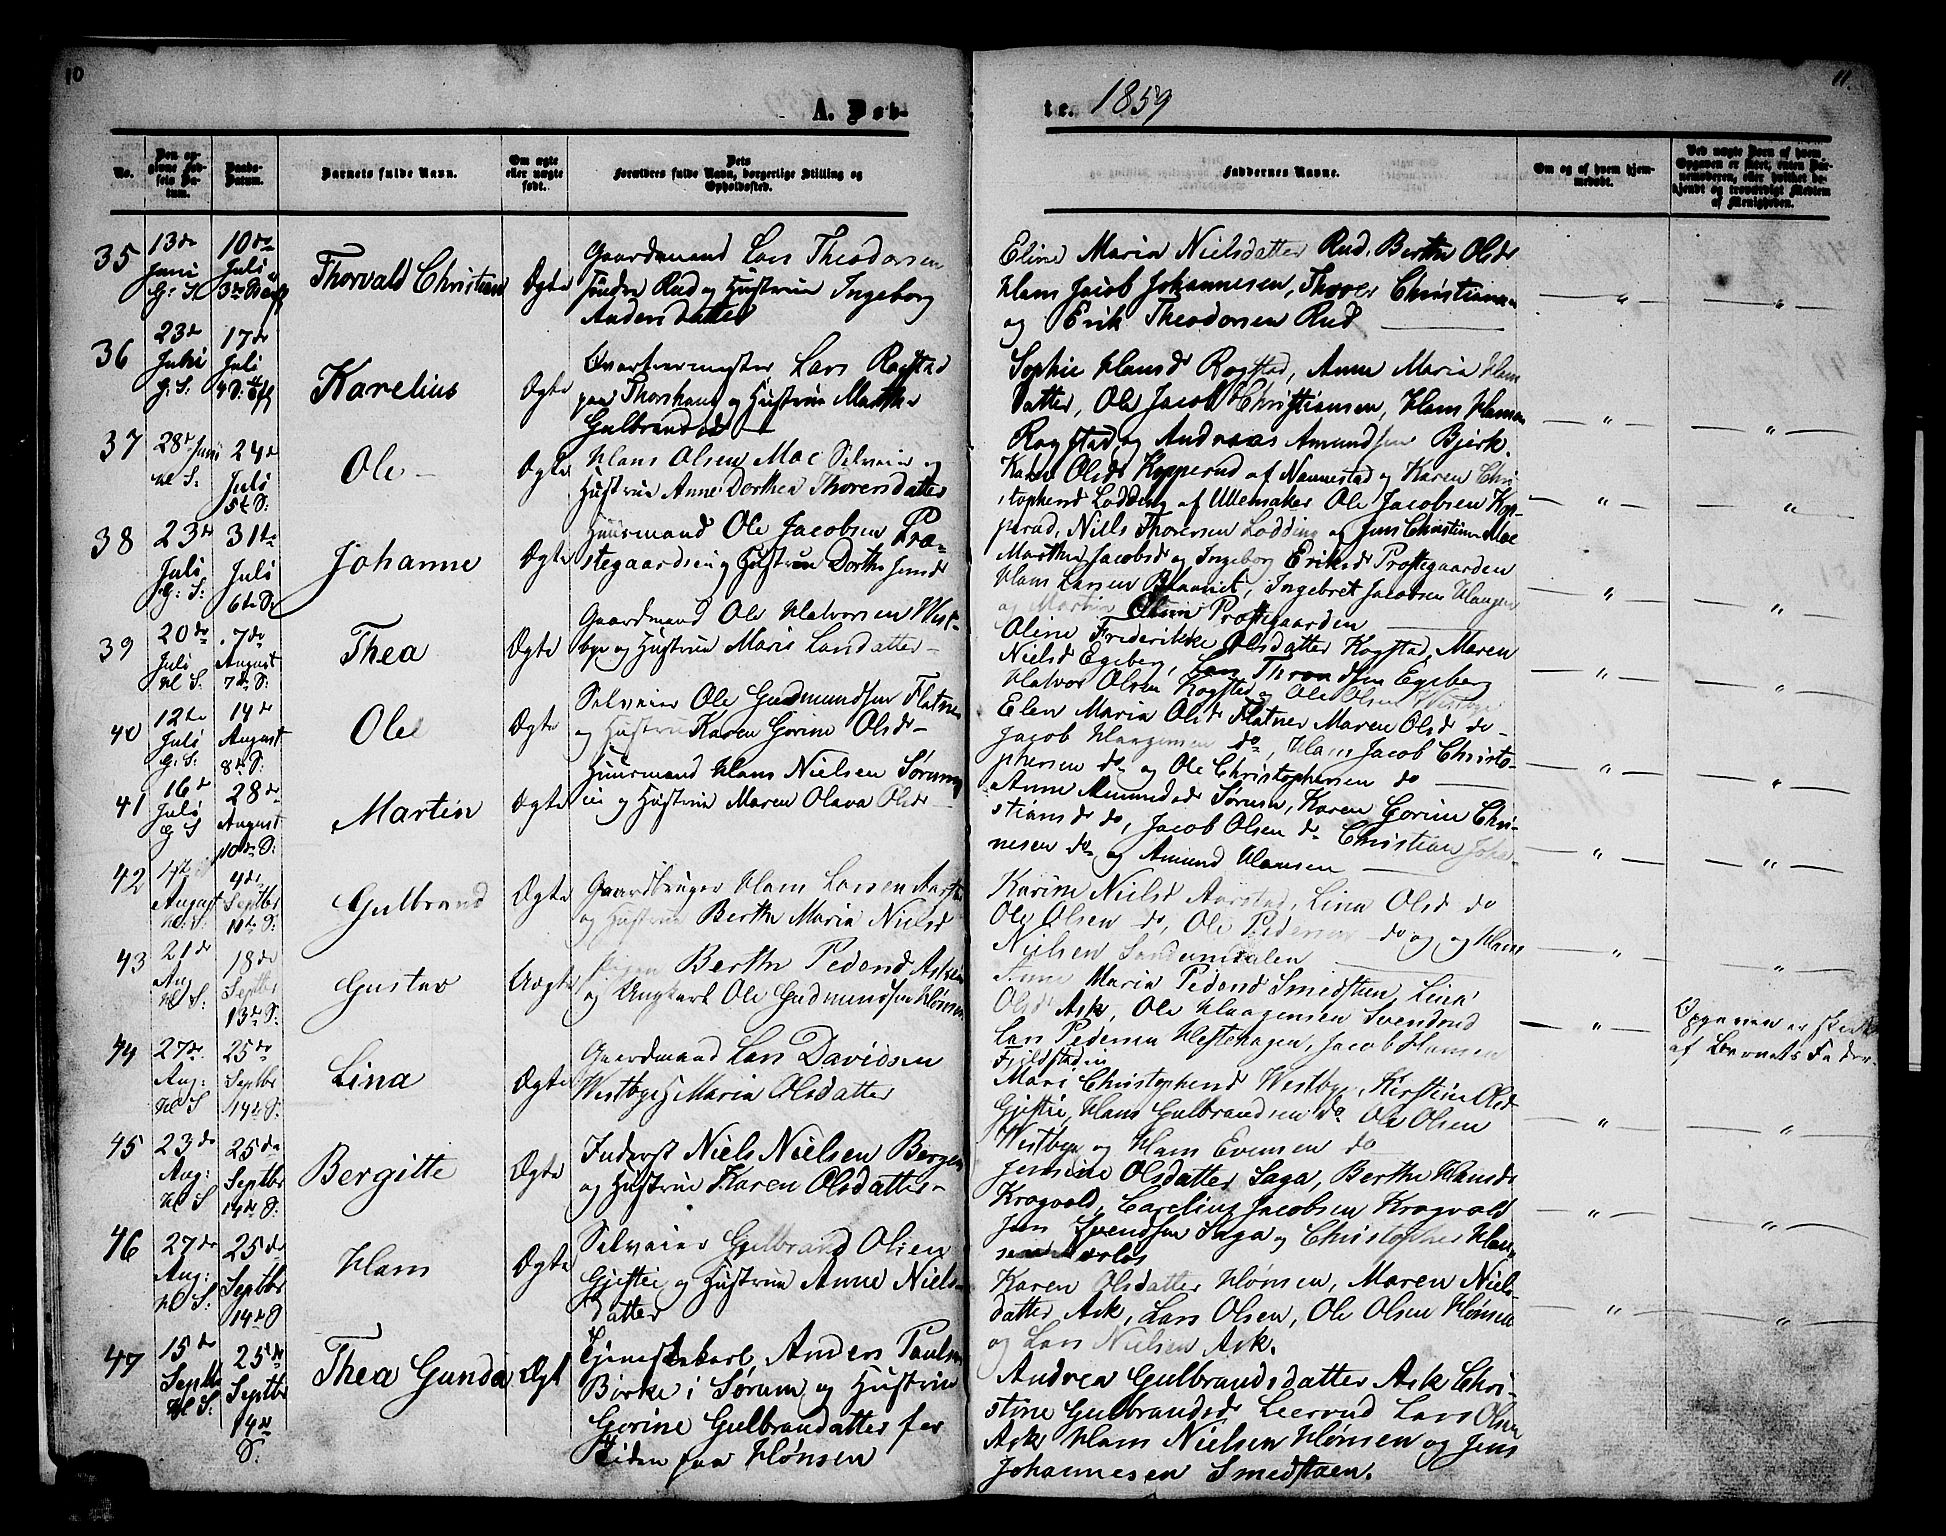 10
11.
A. Døb-
te. 1859
No.
Den op-
givne Fød-
sels Da-
tum.
Daabs-
Datum.
Barnets fulde Navn.
Om ægte
eller uægte
født.
Dets
Forældres fulde Navn, borgerlige Stilling og
Opholdssted.
Faddernes Navne.
Om og af hvem hjem-
medøbt.
Ved uægte Børn af hvem
Opgaven er sket, enten Bar-
nemoderen, eller hvilket be-
kjendt og troværdigt Medlem
af Menigheden.
35
13de
Juni
G: S.
10de
Juli
Thorvald Christian
Ægte
Gaardmand Lars Theodorsen
Søndre Rud og Hustrue Ingeborg
Andersdatter
Eline Maria Nielsdatter Rud, Berthe Olsd
Hans Jacob Johannesen, Thorer Christiansen
og Erik Theodorsen Rud
— " —
— " —
36
23de
Juni
G. S.
17de
Juli
Karelius
Ægte
Qvartermester Lars Rogstad
paa Thorshaug og Hustrue Marthe
Gulbrandsd
Sophie Hansd Rogstad, Anne Maria Hans
datter, Ole Jacob Christiansen, Hans Hansen
Rogstad og Andreas Amundsen Bjerk.
— " —
— " —
37
28de Juni
Hl S:
24de
Juli
5te S:
Ole
Ægte
Hans Olsen Moe Selveier og
Hustrue Anne Dorthea Thorersdatter
Karen Olsd Kopperud af Nannestad og Karen Chri
stophersd Lodding af Ullensaker Ole Jacobsen Kop-
perud, Niels Thorersen Lodding og Jens Christian Moe
— " —
— " —
38
23de
Juli
G: S:
31te
Juli
6te S:
Johanne
Ægte
Huusmand Ole Jacobsen Præ-
stegaardsei og Hustrue Dorthe Jensd
Marthe Jacobsd og Ingeborg Eriksd Prestegaarden
Hans Larsen, Ingebret Jacobsen Haugen
og Martin Olsen Prestegaarden
— " —
— " —
39
20de
Juli
Hl S:
7de
August
7de S:
Thea
Ægte
Gaardmand Ole Halvorsen West-
bye og Hustrue Marie Larsdatter
Oline Frederikke Olsdatter Kogstad, Maren
Nielsd Egeberg, Lars Throndsen Egeberg
Halvor Olsen Kogstad og Ole Olsen Westbye
— " —
— " —
40
12te
Juli
G. S:
14de
August
8de S:
Ole
Ægte
Selveier Ole Gudmundsen Flatner
og Hustrue Karen Gorine Olsd
Elen Maria Olsd Flatner Maren Olsd do
Jacob Haagensen do, Hans Jacob Christo-
phersen do og Ole Christophersen do
— " —
— " —
41
16de
Juli
G S
28de
August
10de S:
Martin
Ægte
Huusmand Hans Nielsen Sørum
ei og Hustrue Maren Olava Olsd
Anne Amundsd Sørum, Karen Gorine Chri-
stiansd do, Jacob Olsen do Christian Johan-
nesen do og Amund Hansen
— " —
— " —
42
August
Hl. S:
4de
Septbr
11te S:
Gulbrand
Ægte
Gaardbruger Hans Larsen Aarstad
og Hustrue Berthe Maria Nielsd
Karine Nielsd Aarstad, Lina Olsd do
Ole Olsen do, Ole Pedersen do og og Hans
Nielsen
— " —
— " —
43
21de
Aug
Hl S:
18de
Septbr
13de S:
Gustav
Uægte
Pigen Berthe Pedersd
og Ungkarl Ole Gudmundsen Hønsen
Anne Maria Pedersd Smedstuen, Lina
Olsd Ask, Ole Haagensen Svendrud
Lars Pedersen Hestehagen, Jacob Hansen
Fjeldstadei
— " —
Opgaven er skeet
af Barnets Fader
44
27de
Aug:
Hl S
25de
Septbr
14de S:
Lina
Ægte
Gaardmand Lars Davidsen
Westbye H Maria Olsdatter
Mari Christophersd Westbye, Kirstine Olsd
Gjestie, Hans Gulbrandsen do Ole Olsen
Westbye og Hans Evensen do
— " —
— " —
45
23de
Aug:
Hl S
25de
Septbr
14de S:
Bergitte
Ægte
Inderst Niels Nielsen Berger
og Hustrue Karen Olsdatter
Jensine Olsdatter Saga, Berthe Hansd
Krogvold, Carelius Jacobsen Krogvold
Jens Svendsen Saga og Christopher Han-
sen
— " —
— " —
46
27de
Aug:
Hl S:
25de
Septbr
14de S
Hans
Ægte
Selveier Gulbrand Olsen
Gjestie og Hustrue Anne Niels-
datter
Karen Olsdatter Hønsen, Maren Niels-
datter Ask, Lars Olsen, Ole Olsen Hønsen
og Lars Nielsen Ask.
— " —
— " —
47
15de
Septbr
Hl S:
25de
Septbr
14de
S:
Thea Gunda
Ægt
Tjenestekarl, Anders Paulsen
Borke i Sørum og Hustrue
Gorine Gulbrandsdatter for
Tiden paa Hønsen
Andrea Gulbrandsdatter Ask Chri-
stine Gulbrandsd Leerrud Lars Olsen
Ask Hans Nielsen Hønsen og Jens
Johannesen Smedstuen.